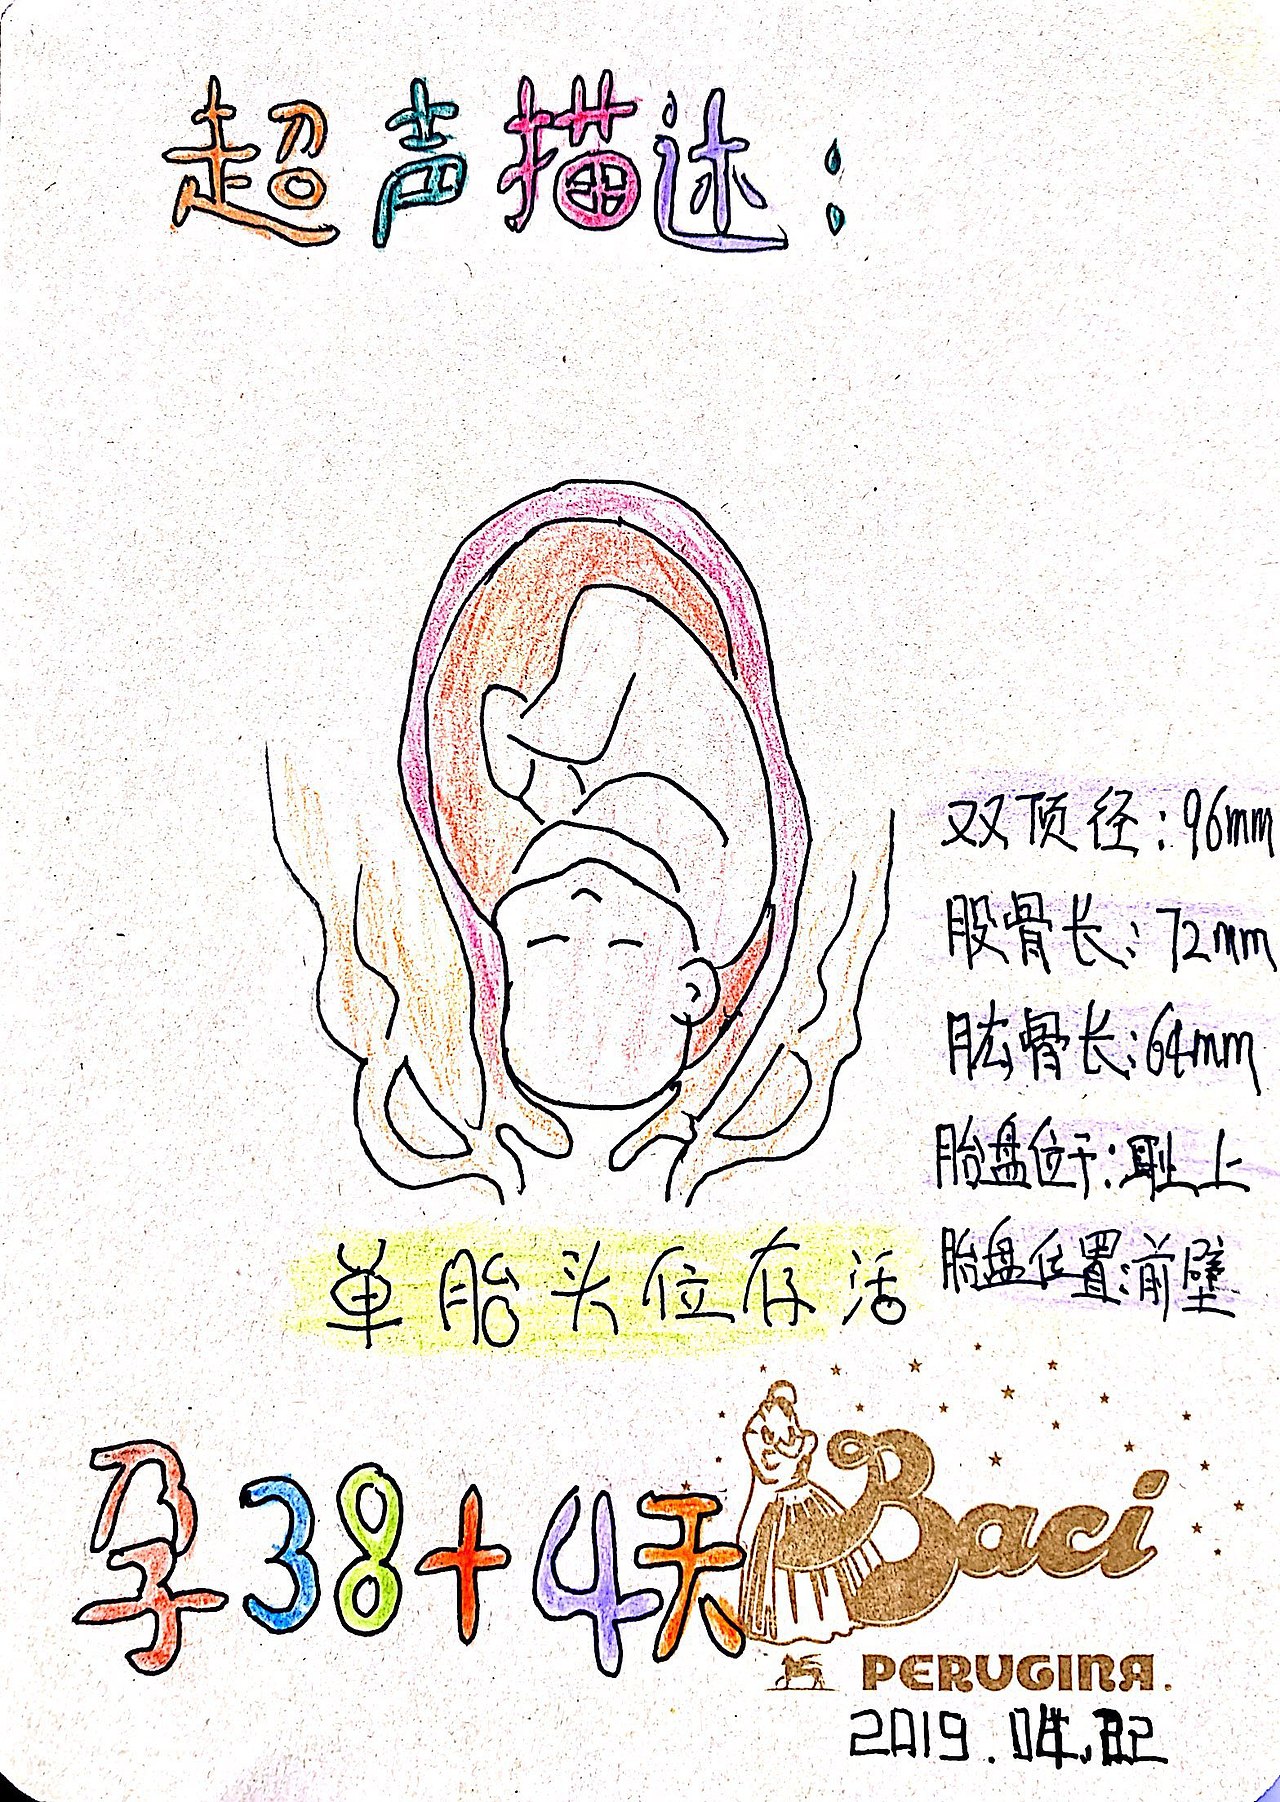 超声描述:
双顶径:96mm
股骨长:72mm
肱骨长:64mm
胎盘位于:耻上
胎盘位置:前壁
单胎头位存活
孕38+4天
Baci
PERUGINA.
2019.